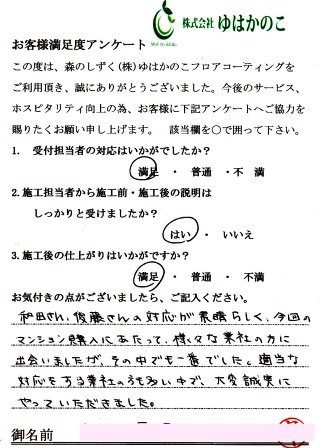 株式会社 ゆはかのこ
お客様満足度アンケート
この度は、森のしずく(株)ゆはかのこフロアコーティングを
ご利用頂き、誠にありがとうございました。今後のサービス、
ホスピタリティ向上の為、お客様に下記アンケートへご協力を
賜りたくお願い申し上げます。 該当欄を○で囲って下さい。
1. 受付担当者の対応はいかがでしたか?
満足 ・ 普通 ・不 満
2. 施工担当者から施工前・施工後の説明は
しっかりと受けましたか?
はい ・ いいえ
3. 施工後の仕上がりはいかがですか?
満足 ・ 普通 ・ 不満
お気付きの点がございましたら、ご記入ください。
和田さん、後藤さんの対応が素晴らしく、今回の
マンション購入にあたって、様々な業社の方に
出会いましたが、その中でも一番でした。適当な
対応をする業社のうちも多い中で、大変誠実に
やっていただきました。
御名前